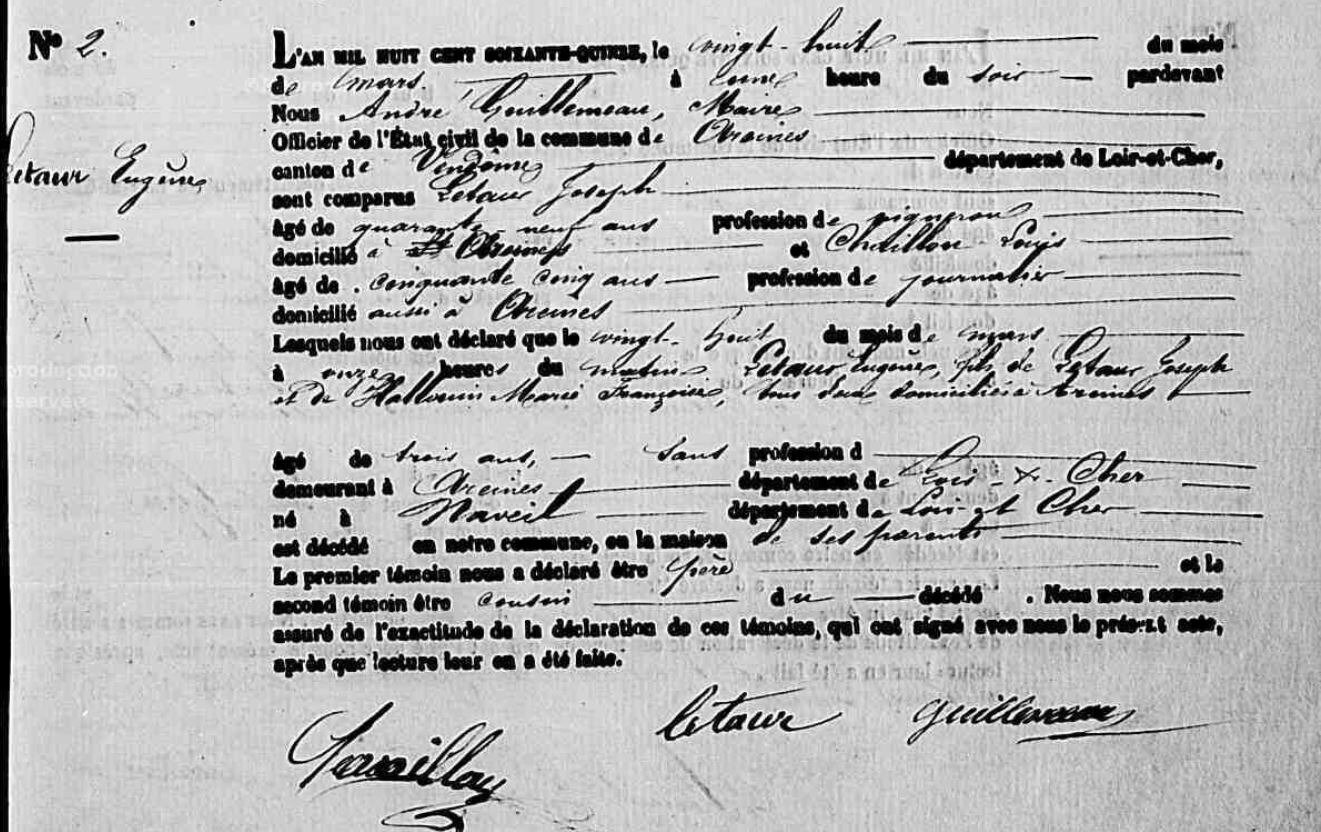 N° 2.
Letaur Eugène
L'AN MIL HUIT CENT SOIXANTE-QUINZE, le vingt-huit du mois
de mars à une heure du soir pardevant
Nous André Guillemeau, Maire
Officier de l'État civil de la commune de Areines
canton de Vendôme département de Loir-et-Cher,
sont comparus Letaur Joseph
âgé de quarante neuf ans profession de vigneron
domicilié à Areines et Chaillou Louis
âgé de cinquante cinq ans profession de journalier
domicilié aussi à Areines
Lesquels nous ont déclaré que le vingt-huit du mois de mars
à onze heures du matin Letaur Eugène, fils de Letaur Joseph
et de Hallouin Marie Françoise, tous deux domiciliés à Areines
âgé de trois ans, sans profession d
demeurant à Areines département de Loir-&-Cher
né à Naveil département de Loir-et Cher
est décédé en notre commune, en la maison de ses parents
Le premier témoin nous a déclaré être père et le
second témoin être cousin du décédé. Nous nous sommes
assuré de l'exactitude de la déclaration de ces témoins, qui ont signé avec nous le présent acte,
après que lecture leur en a été faite.
letaur Guillemeau